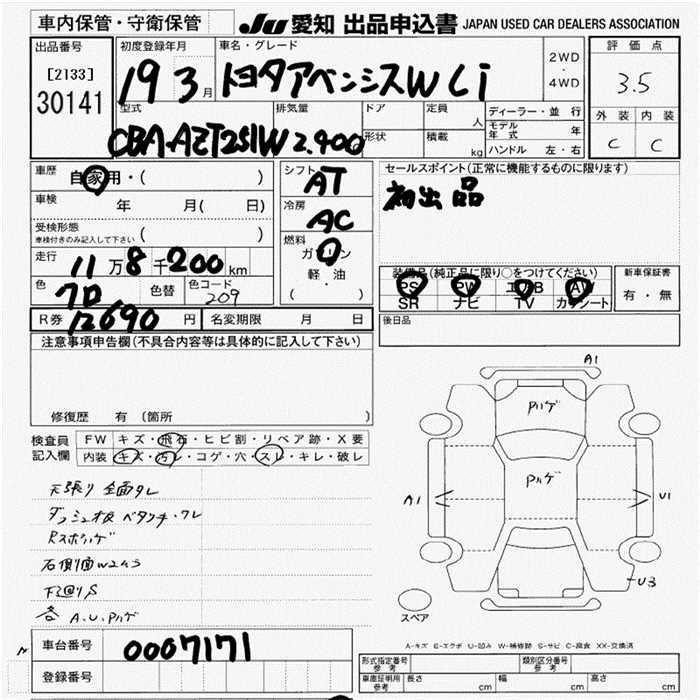 車内保管・守衛保管
JU 愛知 出品申込書 JAPAN USED CAR DEALERS ASSOCIATION
出品番号 [2133] 30141
初度登録年月 19 3 月
車名・グレード トヨタアベンシスWLi
2WD・4WD
評価点 3.5
外装 内装
C C
型式 CBA-AZT251W
排気量 2.400
ドア 形状
定員 人
積載 kg
ディーラー・並行
モデル年式 年
ハンドル 左・右
車歴 自家用・( )
車検 年 月( 日)
受検形態 車検付きのみ記入して下さい ( )
走行 11万8千200km
色 クロ 色替 色コード 209
R券 12690 円 名変期限 月 日
シフト AT
冷房 AC
燃料 ガソリン 軽・油 ( )
セールスポイント(正常に機能するものに限ります)
初出品
装備品(純正品に限り○をつけてください)
PS PW エアB AW
SR ナビ TV カワシート
新車保証書 有・無
後日品
注意事項申告欄(不具合内容等は具体的に記入して下さい)
修復歴 有 (箇所 )
検査員記入欄
FW キズ・飛石・ヒビ割・リペア跡・X要
内装 キズ・汚レ・コゲ・穴・スレ・キレ・破レ
天張り 全面タレ
ダッシュ板 ベタツキ・ワレ
A1
Pハゲ
Pハゲ
A1
U1
U3
各 A.U.Pハゲ
スペア
A-キズ E-エクボ U-凹み W-補修跡 S-サビ C-腐食 XX-交換済
車台番号 0007171
登録番号
型式指定番号 参考
類別区分番号 参考
車庫証明用 参考 長さ cm 幅 cm 高さ cm